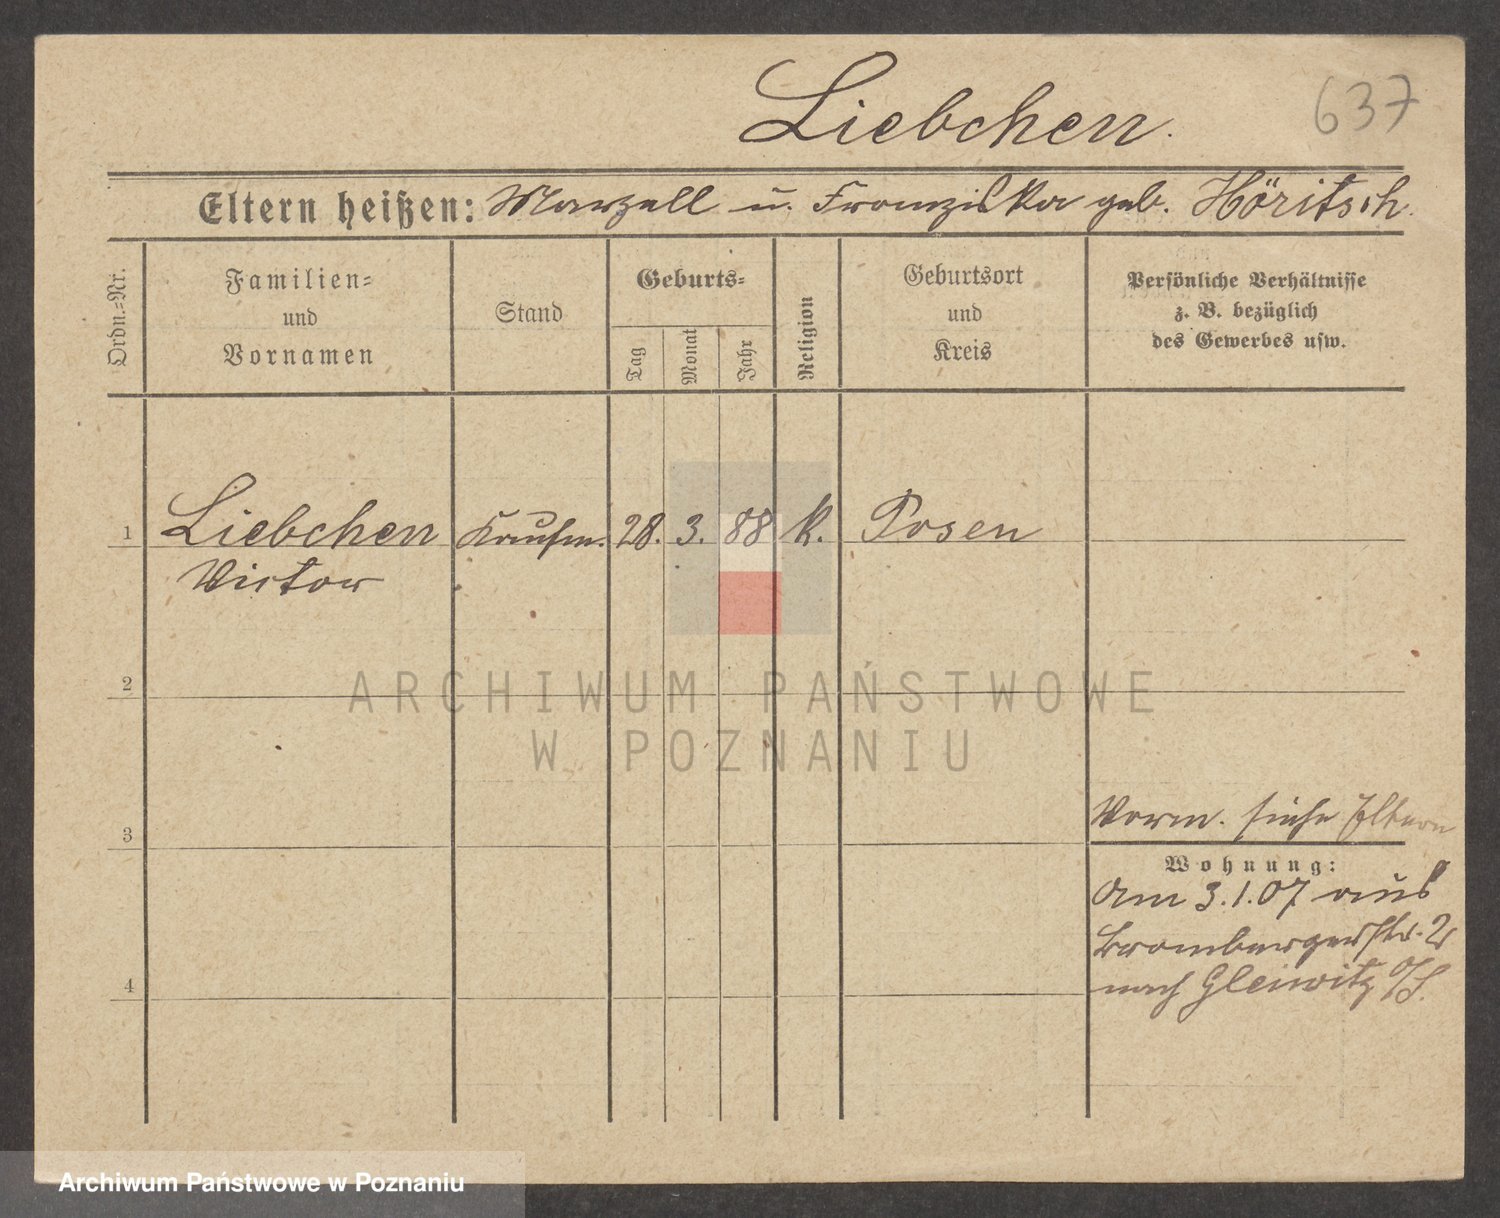 Liebchen.
637
Eltern heißen: Marzell u. Franziska geb. Höritsch.
Ordn.=Nr.
Familien=
und
Vornamen
Stand
Geburts=
Tag
Monat
Jahr
Religion
Geburtsort
und
Kreis
Persönliche Verhältnisse
z. B. bezüglich
des Gewerbes usw.
1 Liebchen Kaufm. 28. 3. 88 k. Posen
Victor
ARCHIWUM PAŃSTWOWE
2
W POZNANIU
Vorm. siehe Eltern
3
Wohnung:
Am 3.1.07 aus
Brombergerstr. 2
nach Gleiwitz O/S.
4
Archiwum Państwowe w Poznaniu